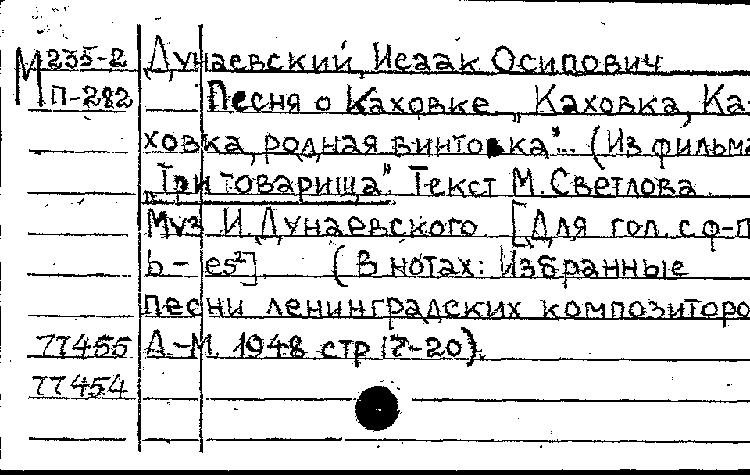 М 235-2 Дунаевский, Исаак Осипович
П-282 Песня о Каховке „Каховка, Ка-
ховка, родная винтовка"... (Из фильма
„Три товарища". Текст М. Светлова
Муз И. Дунаевского. [Для гол. с ф-п
b - es²]. (В нотах: Избранные
песни ленинградских композиторо
77455 Л.-М. 1948 стр 17-20).
77454